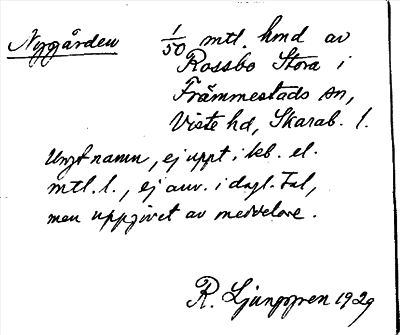 Nygården 1/50 mtl. hmd av
Rossbo Stora i
Främmestads sn,
Viste hd, Skarab. l.
Ungt namn, ej uppt i kb. el.
mtl. l., ej anv. i dagl. tal,
men uppgivet av meddelare.
R. Ljunggren 1929